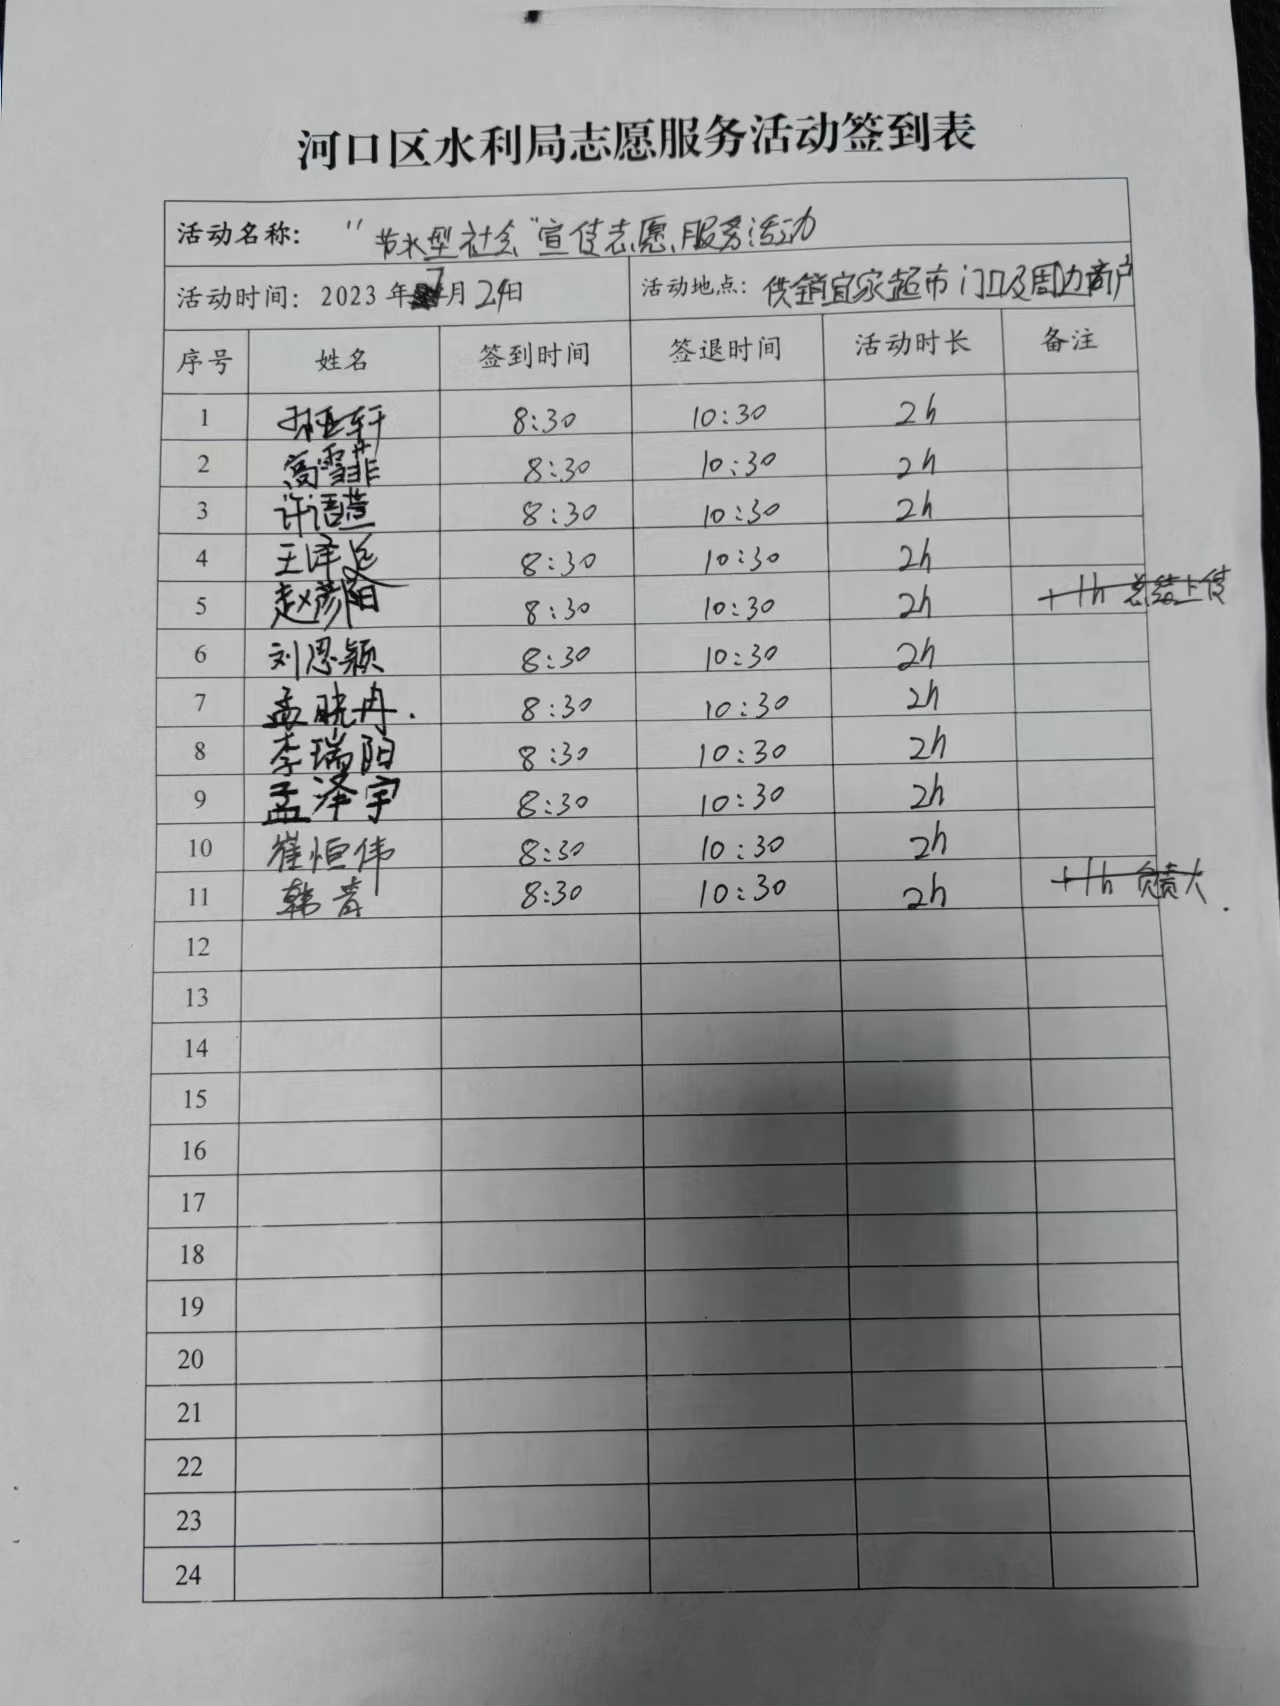 河口区水利局志愿服务活动签到表
活动名称： “节水型社会”宣传志愿服务活动
活动时间：2023年7月24日 活动地点：供销宜家超市门口及周边商户
序号 姓名 签到时间 签退时间 活动时长 备注
1 轩 8:30 10:30 2h
2 高雪菲 8:30 10:30 2h
3 许语萱 8:30 10:30 2h
4 王泽 8:30 10:30 2h
5 赵彦阳 8:30 10:30 2h +1h 总结上传
6 刘思颖 8:30 10:30 2h
7 孟晓冉. 8:30 10:30 2h
8 李瑞阳 8:30 10:30 2h
9 孟泽宇 8:30 10:30 2h
10 崔恒伟 8:30 10:30 2h
11 韩青 8:30 10:30 2h +1h 负责人.
12
13
14
15
16
17
18
19
20
21
22
23
24